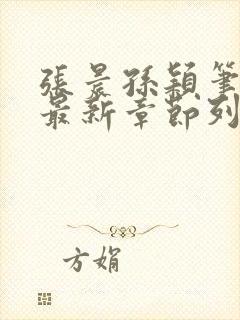 張晨孫穎筆
最新章節列
方娟